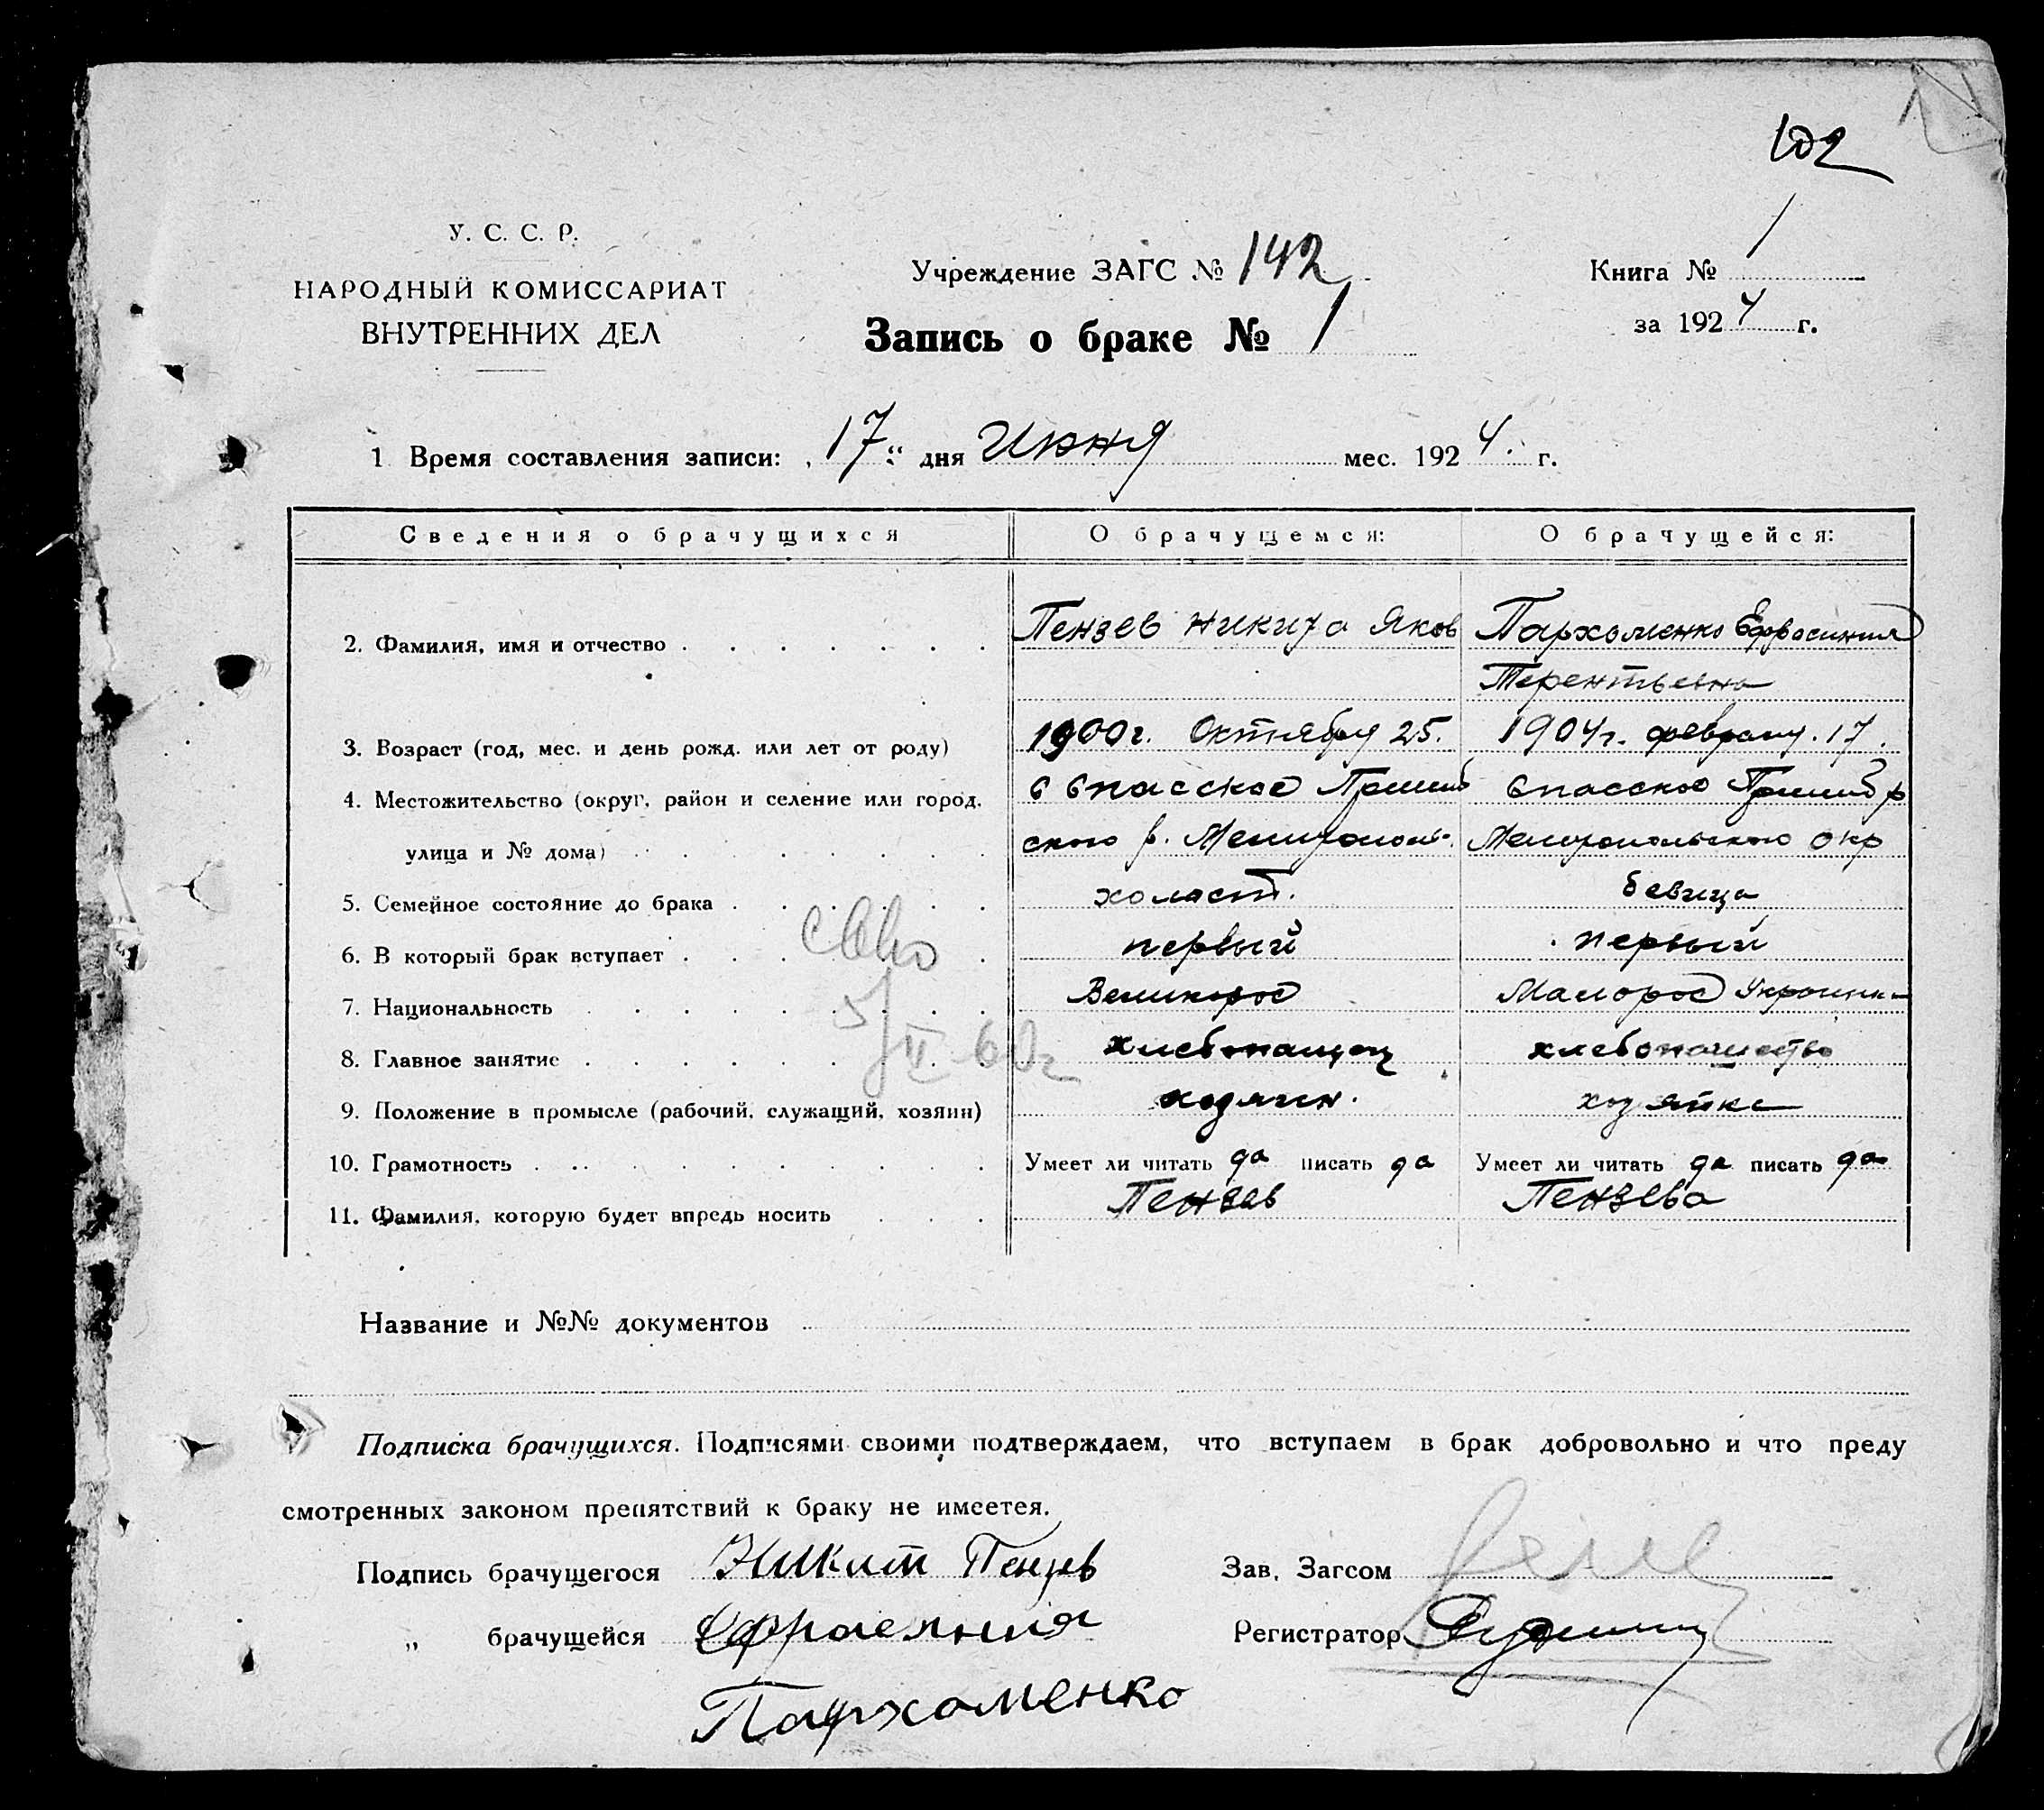 102
У. С. С. Р.
НАРОДНЫЙ КОМИССАРИАТ
ВНУТРЕННИХ ДЕЛ
Учреждение ЗАГС № 142
Книга № 1
Запись о браке № 1
за 1924 г.
1 Время составления записи: „17“ дня Июня мес. 1924. г.
Сведения о брачущихся О брачущемся: О брачущейся:
2. Фамилия, имя и отчество Пензев Никита Яков Пархоменко Ефросиния
Терентьевна
3. Возраст (год, мес. и день рожд. или лет от роду) 1900г. Октября 25. 1904г. февраля. 17.
4. Местожительство (округ, район и селение или город, с Спасское Пришиб Спасское Пришиб р
улица и № дома) ского р. Мелитополь. Мелитопольского окр
5. Семейное состояние до брака холаст. девица
6. В который брак вступает первый первый
7. Национальность Великорос Малорос Украинк
8. Главное занятие хлебопашец хлебопашество
9. Положение в промысле (рабочий, служащий, хозяин) хозяин. хозяйка
II 60г
10. Грамотность Умеет ли читать да писать да Умеет ли читать да писать да
11. Фамилия, которую будет впредь носить Пензев Пензева
Название и №№ документов
Подписка брачущихся. Подписями своими подтверждаем, что вступаем в брак добровольно и что преду
смотренных законом препятствий к браку не имеется.
Подпись брачущегося Никит Пензев Зав. Загсом
„ брачущейся Ефрасиния Регистратор
Пархоменко